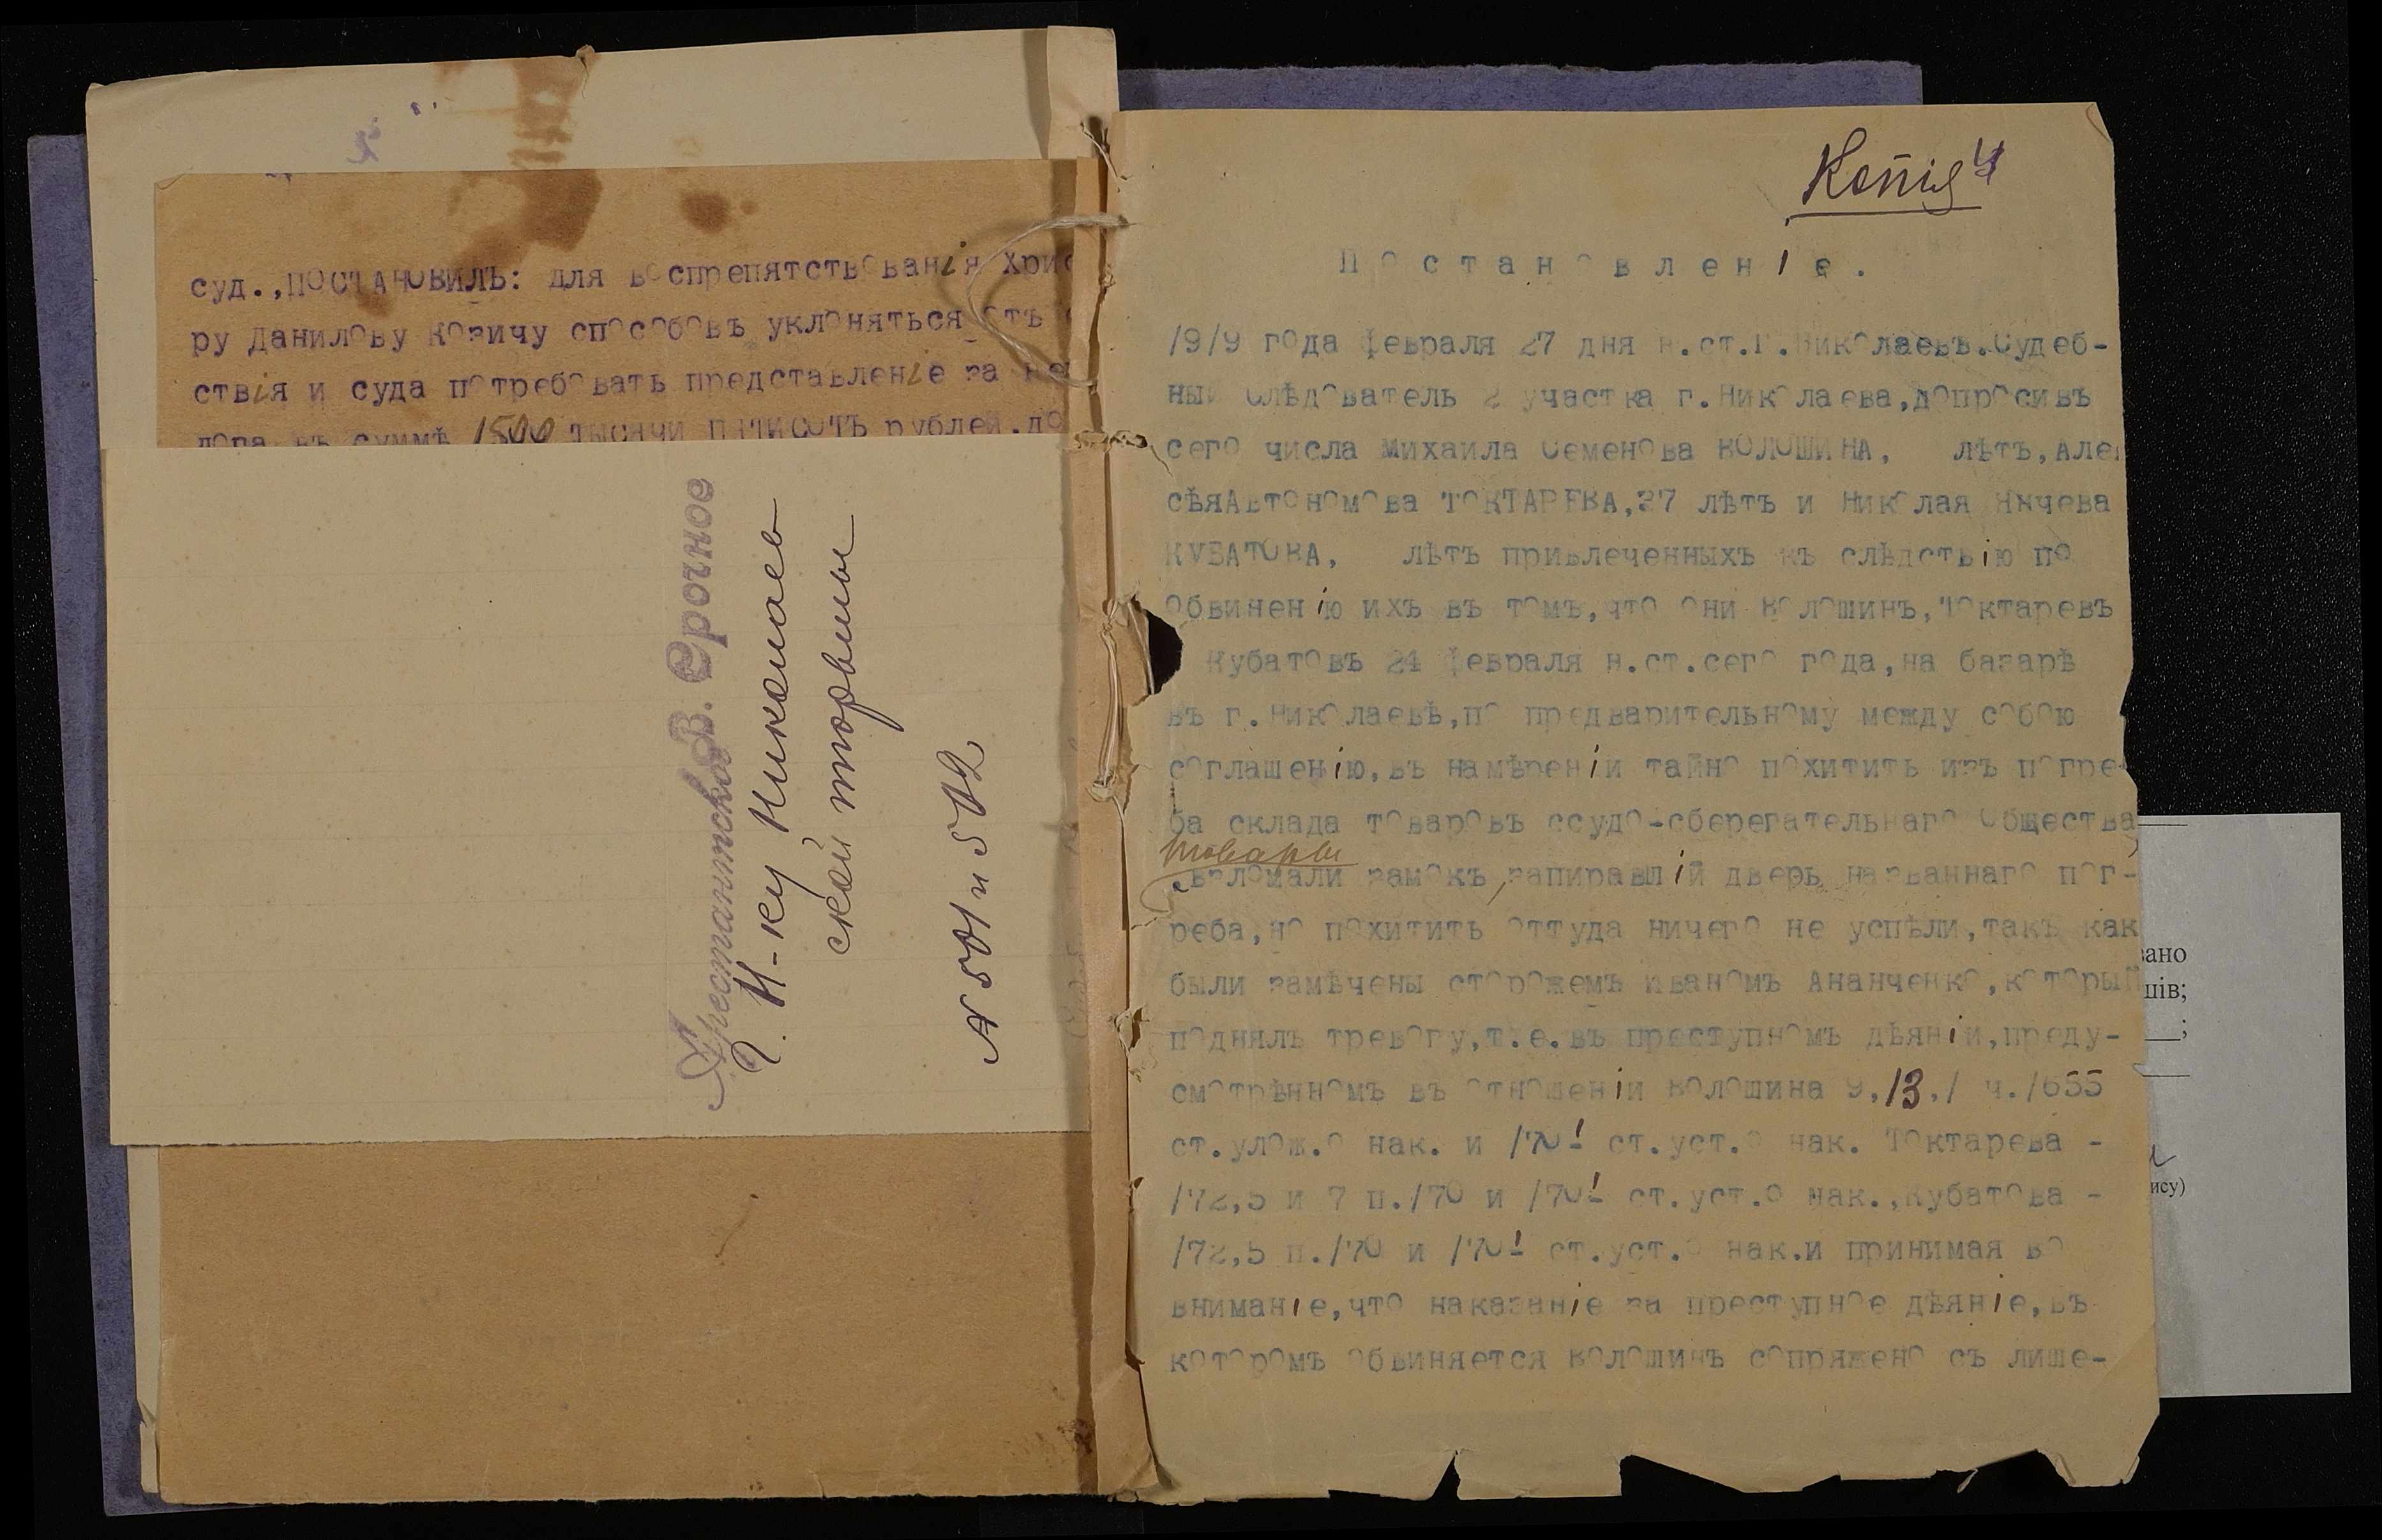 суд.,ПОСТАНОВИЛЪ: для воспрепятствованія Хрис
ру Данилову Козичу способовъ уклоняться отъ
ствія и суда потребовать представленіе за
лога въ суммѣ 1500 тысячи ПЯТИСОТЪ рублей.до
Арестантское В. Срочное
Г. Н-ку Николаев
ской тюрьмы
№ 501 и 502
Копія 4
Постановленіе.
/9/9 года февраля 27 дня н.ст.Г.Николаевъ.Судеб-
ный Слѣдователь 2 участка г.Николаева,допросивъ
сего числа Михаила Семенова ВОЛОШИНА, лѣтъ,Але
сѣяАвтономова ТОКТАРЕВА,37 лѣтъ и Николая
КУБАТОВА, лѣтъ привлеченныхъ къ слѣдствію по
обвиненію ихъ въ томъ,что они Волошинъ,Токтаревъ
Кубатовъ 24 февраля н.ст.сего года,на базарѣ
въ г.Николаевѣ,по предварительному между собою
соглашенію,въ намѣреніи тайно похитить изъ погре
ба склада товаровъ ссудо-сберегательнаго Общества
товары
,взломали замокъ,запиравшій дверь названнаго пог-
реба,но похитить оттуда ничего не успѣли,такъ как
были замѣчены сторожемъ Иваномъ Ананченко,который
поднялъ тревогу,т.е.въ преступномъ дѣяніи,преду-
смотрѣнномъ въ отношеніи Волошина 9,/3,/ ч./655
ст.улож.о нак. и /70! ст.уст.о нак. Токтарева -
/72,5 и 7 п./70 и /70! ст.уст.о нак.,Кубатова -
/72,5 п./70 и /70! ст.уст.о нак.и принимая во
вниманіе,что наказаніе за преступное дѣяніе,въ
которомъ обвиняется Волошинъ сопряжено съ лише-
вано
шів;
ису)